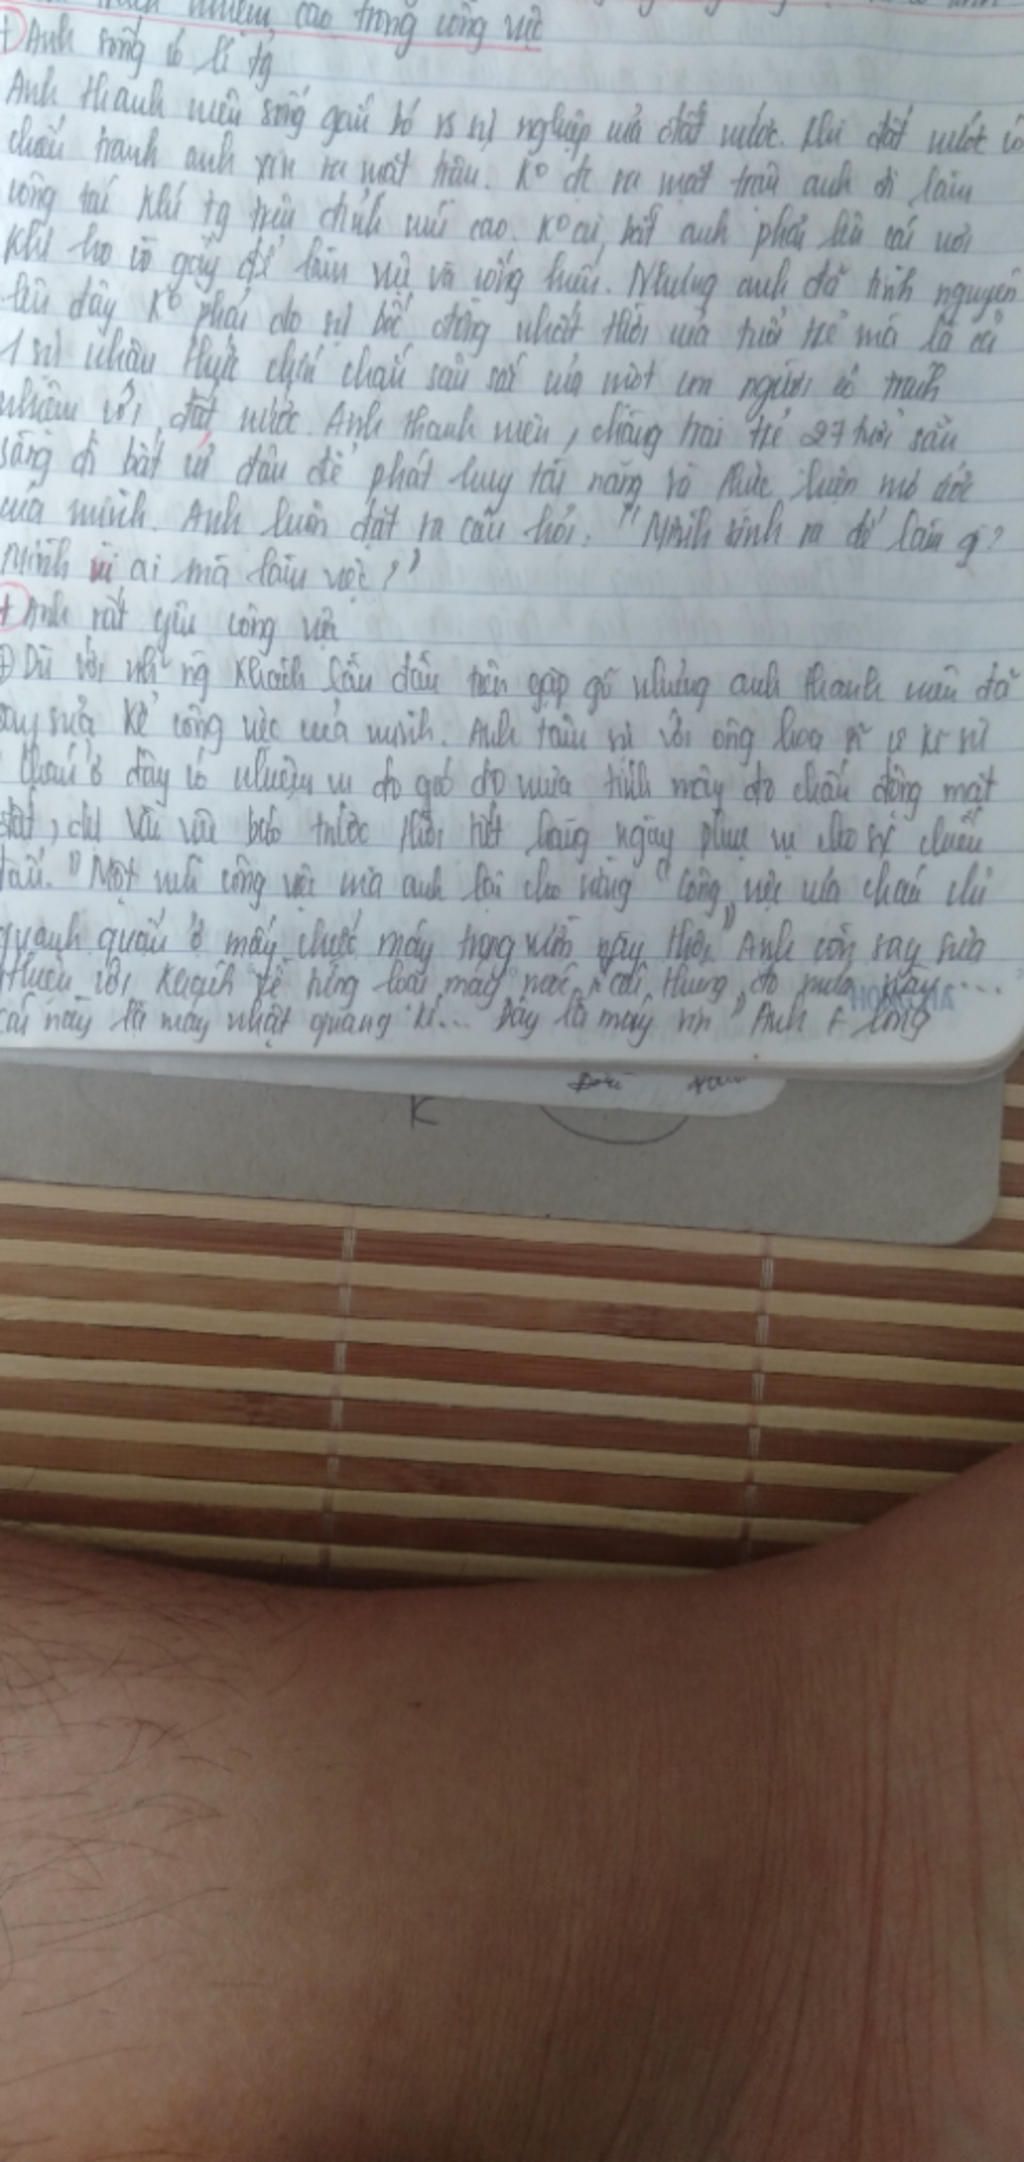 nhiệm cao trong công việc
+ Anh sống có lí tg
Anh thanh niên sống gắn bó vs sự nghiệp của đất nước. Khi đất nước có
chiến tranh anh xin ra mặt trận. Ko đc ra mặt trận anh đi làm
công tác khí tg trên đỉnh núi cao. Ko ai bắt anh phải lên cái nơi
khỉ ho cò gáy để làm việc và cống hiến. Nhưng anh đã tình nguyện
lên đây ko phải do sự bốc đồng nhất thời của tuổi trẻ mà là cả
1 sự nhận thức chín chắn sâu sắc của một con người có trách
nhiệm với đất nước. Anh thanh niên, chàng trai trẻ 27 tuổi sẵn
sàng đi bất cứ đâu để phát huy tài năng và thực hiện mơ ước
của mình. Anh luôn đặt ra câu hỏi: "Mình sinh ra để làm gì?
Mình vì ai mà làm việc?"
+ Anh rất yêu công việc
+ Dù với những khách lần đầu tiên gặp gỡ nhưng anh thanh niên đã
say sưa kể công việc của mình. Anh tâm sự với ông họa sĩ và kĩ sư
cháu ở đây có nhiệm vụ đo gió đo mưa tính mây đo chấn động mặt
đất, dự vào việc báo trước thời tiết hàng ngày phục vụ cho sx chiến
đấu." Một mình công việc mà anh lại cho rằng "công việc của cháu chỉ
quanh quẩn ở mấy chiếc máy trong vườn này thôi" Anh còn say sưa
với khách về từng loại máy móc, "cái thùng đo mưa này...
cái này là máy nhật quang kí... Đây là máy vin" Anh
HONG HA
K